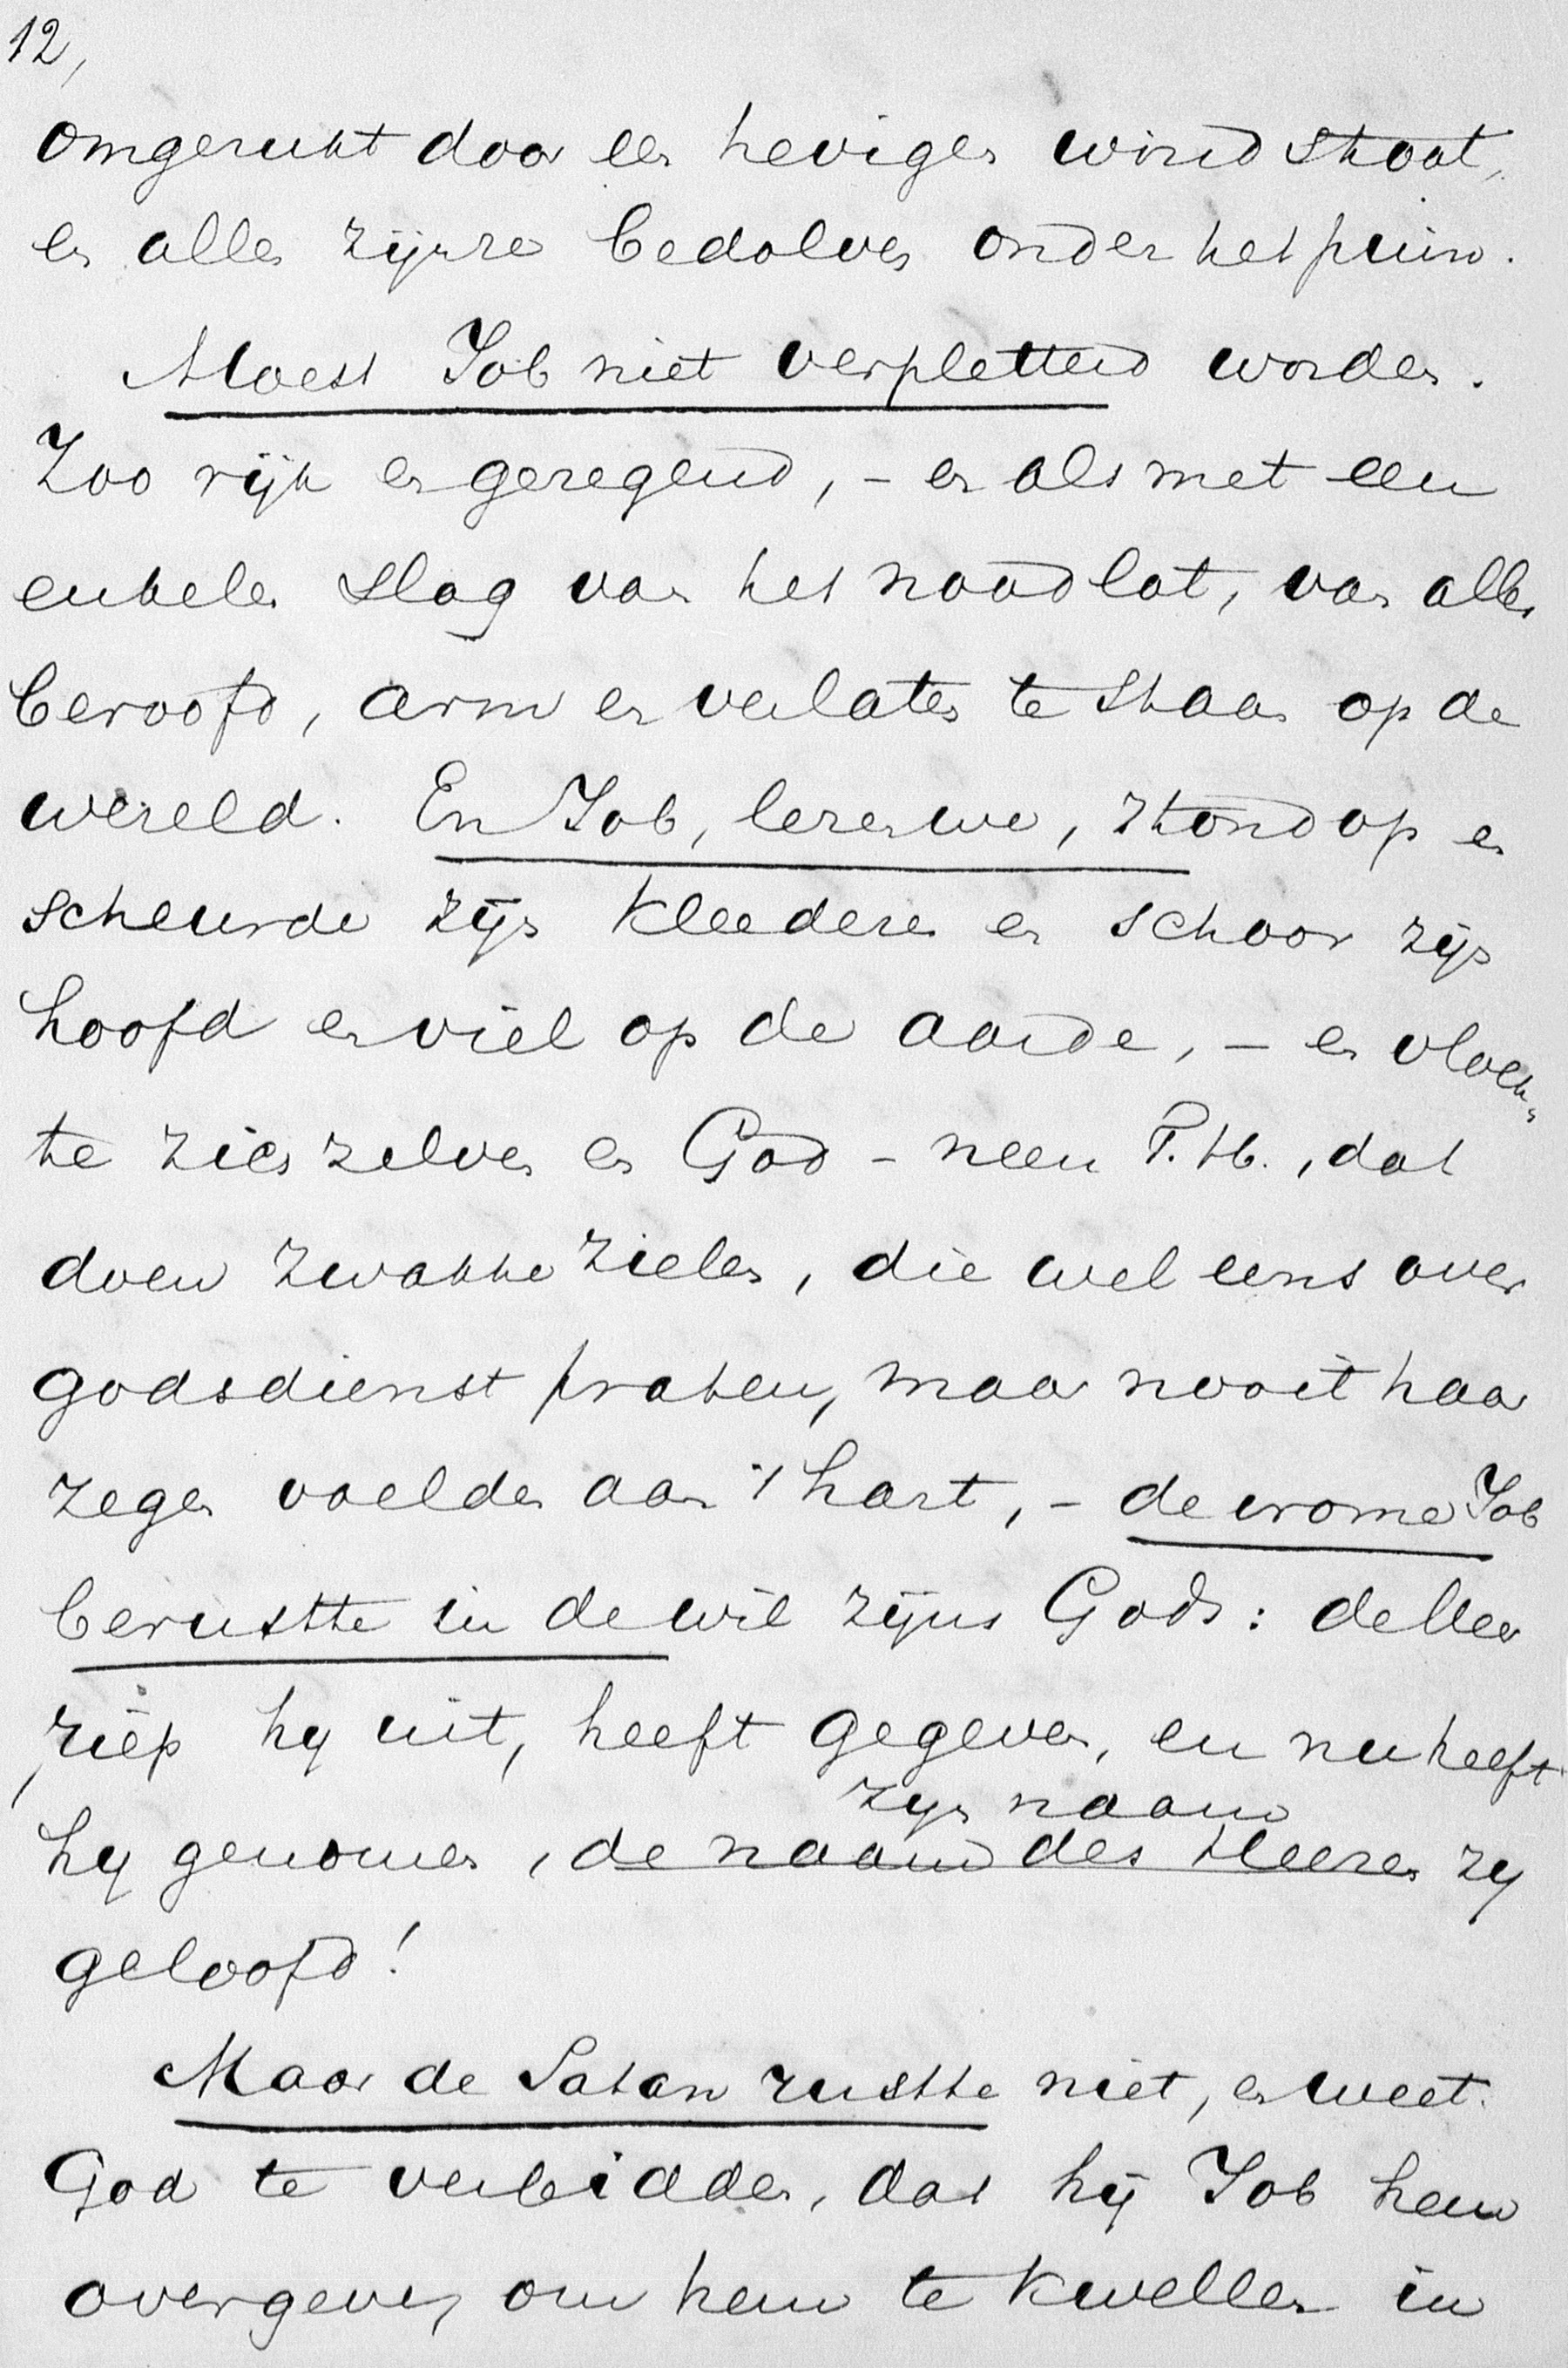 12,
omgerukt door een hevigen windstoot,
en alle zijnze bedolven onder het puin.
Moest Job niet verpletterd worden.
Zoo rijk en gezegend, - en als met een
enkelen slag van het noodlot, van alles
beroofd, arm en verlaten te staan op de
wereld. En Job, lezen we, stond op en
scheurde zijn kleederen en schoor zijn
hoofd en viel op de aarde, - en vloek-
te zich zelven en God - neen T. H., dat
doen zwakke zielen, die wel eens over
godsdienst praten, maar nooit haar
zegen voelden aan 't hart, - de vrome Job
berustte in de wil zijns Gods: de Heer
riep hy uit, heeft gegeven, en nu heeft
zyn naam
hy genomen, de naam des Heeren zy
geloofd!
Maar de Satan rustte niet, en weet
God te verbidden, dat hij Job hem
overgeve, om hem te kwellen in